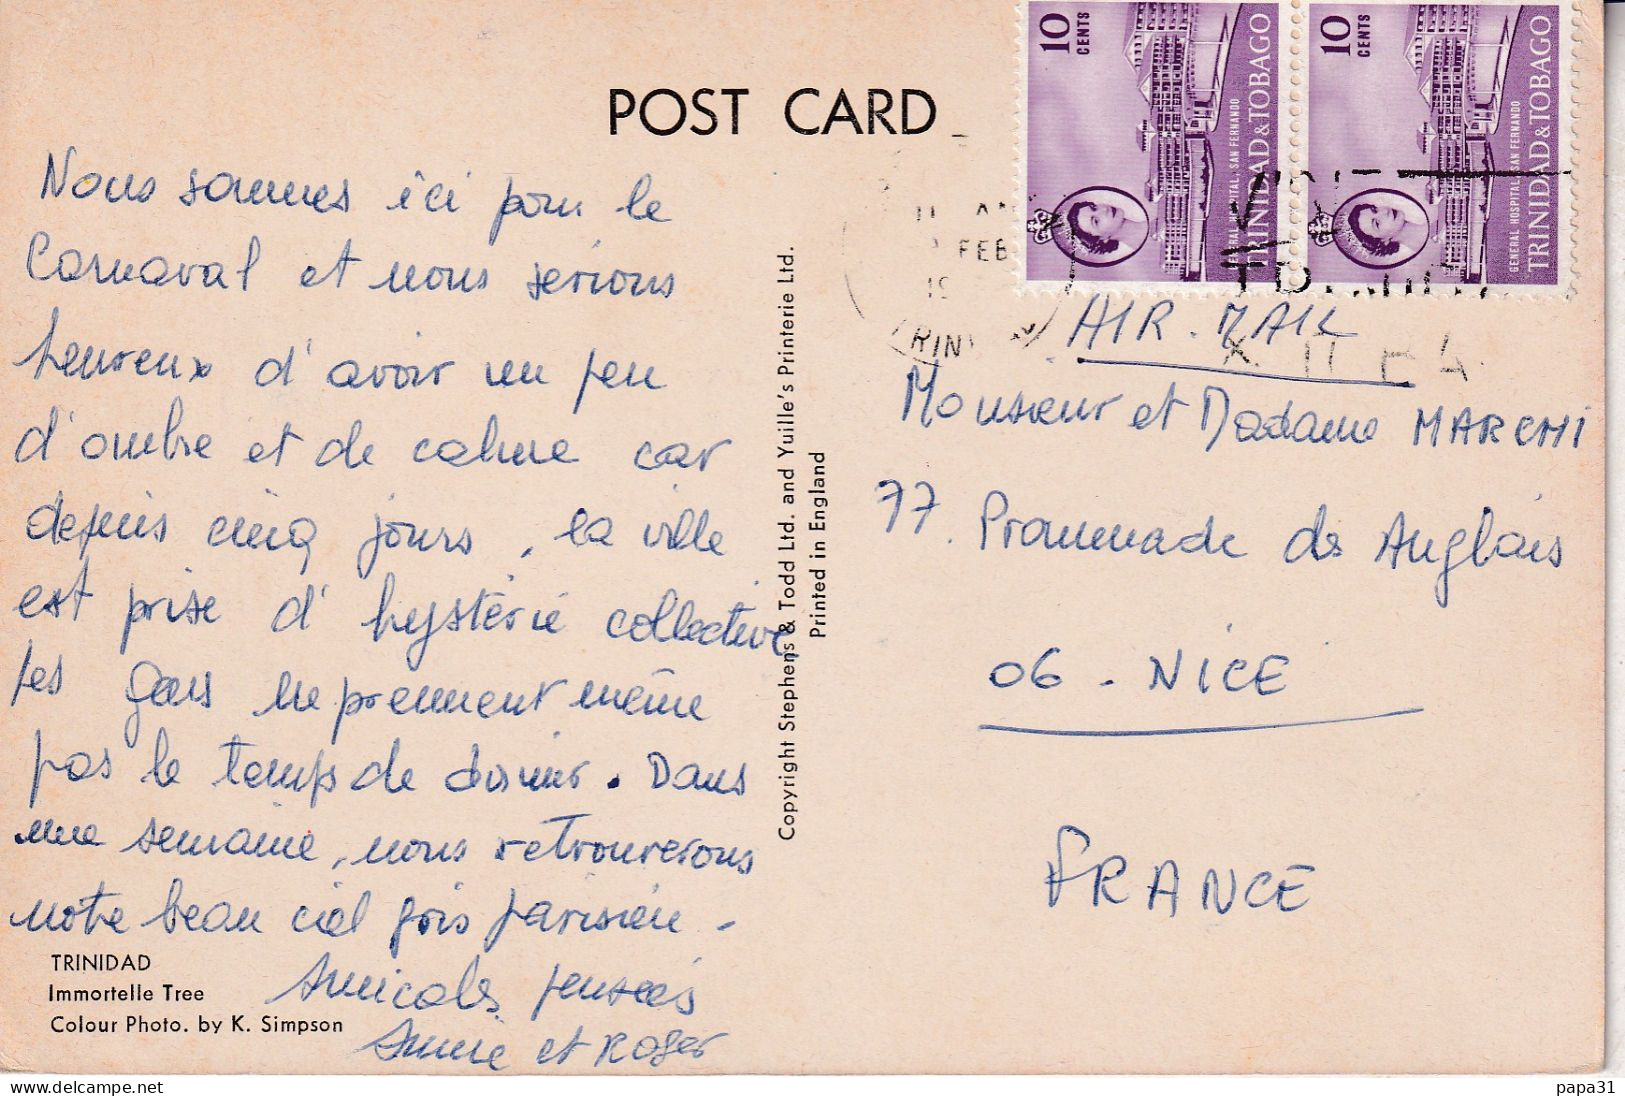 POST CARD
Nous sommes ici pour le
Carnaval et nous serions
heureux d'avoir un peu
d'ombre et de calme car
depuis cinq jours, la ville
est prise d'hystérie collective
les gens ne prennent même
pas le temps de dormir. Dans
une semaine, nous retrouverons
notre beau ciel gris parisien -
Amicales pensées
Annie et Roger
TRINIDAD
Immortelle Tree
Colour Photo. by K. Simpson
Copyright Stephens & Todd Ltd. and Yuille's Printerie Ltd.
Printed in England
10 CENTS
GENERAL HOSPITAL, SAN FERNANDO
TRINIDAD & TOBAGO
10 CENTS
GENERAL HOSPITAL, SAN FERNANDO
TRINIDAD & TOBAGO
FEB
AIR. MAIL
Monsieur et Madame MARCHI
77. Promenade des Anglais
06 - NICE
FRANCE
papa31